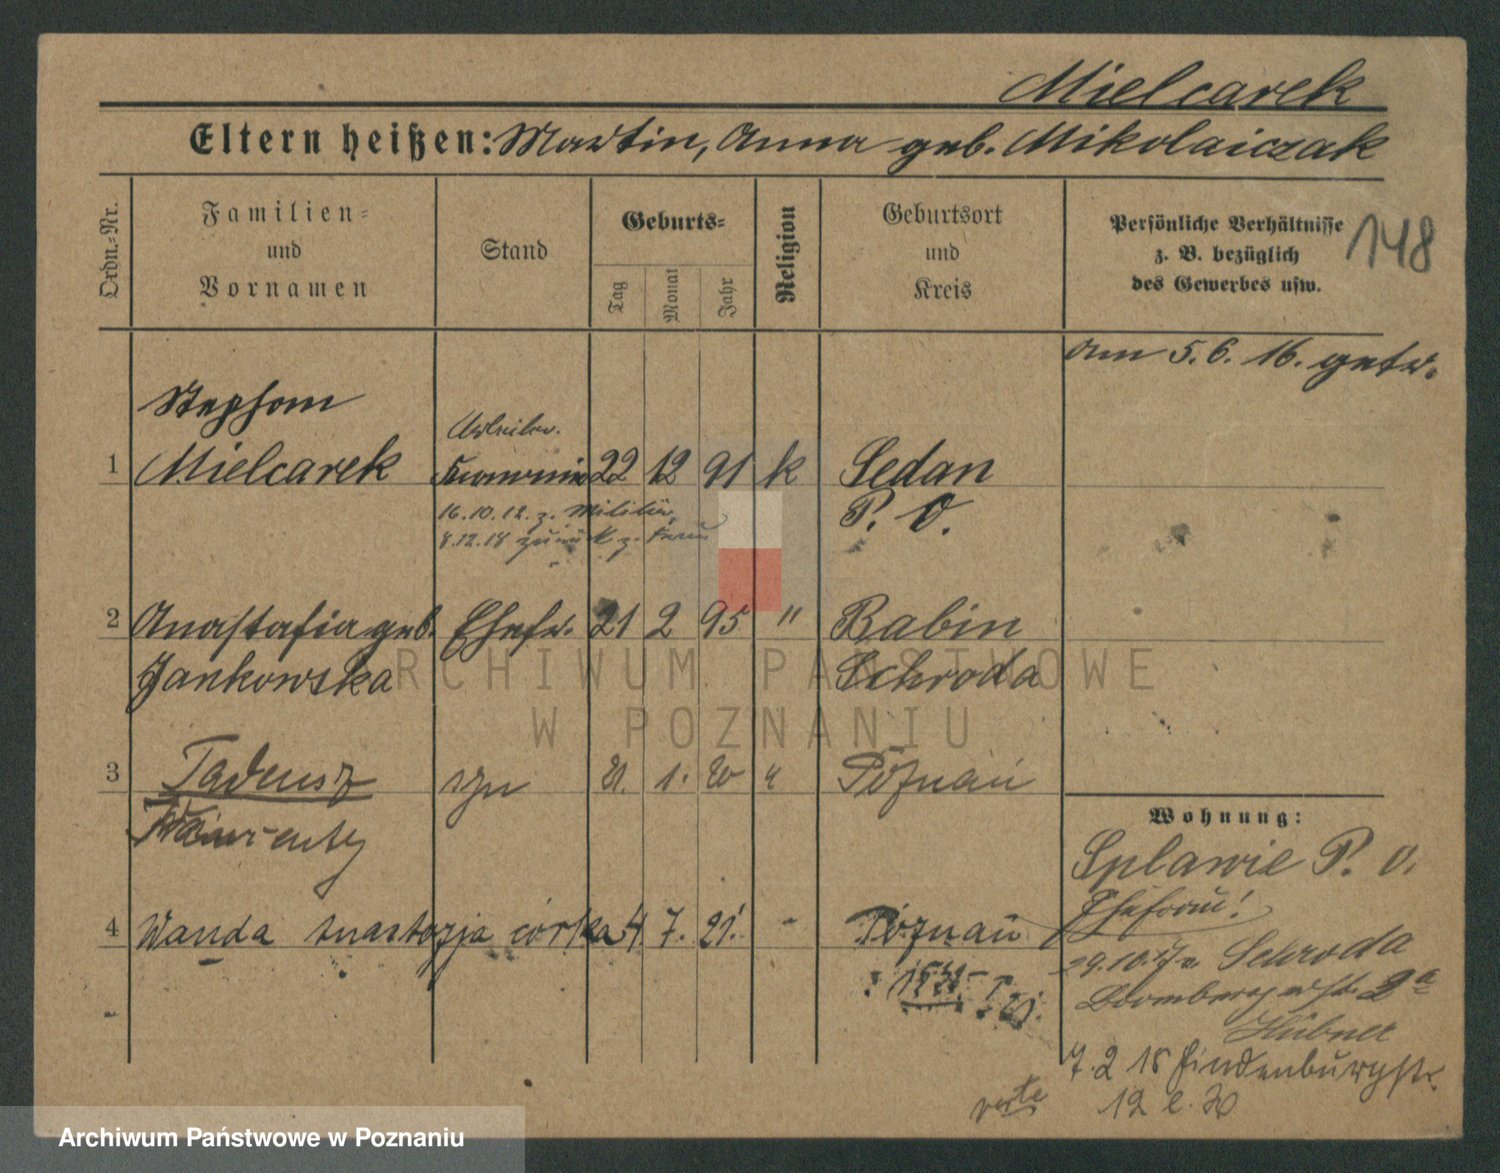 Mielcarek
Eltern heißen: Martin, Anna geb. Mikolaiczak
Ordn.-Nr.
Familien-
und
Vornamen
Stand
Geburts-
Tag
Monat
Jahr
Religion
Geburtsort
und
Kreis
Persönliche Verhältnisse
z. B. bezüglich
des Gewerbes usw.
148
Am 5.6.16. getr.
Stephan
Arbeiter.
1 Mielcarek 22 12 91 k Sedan
P. O.
16.10.12. z. Militär
8.12.18 zurück z. Frau
2 Anastasia geb. Ehefr. 21 2 95 " Babin
Jankowska Schroda
3 Tadeusz syn 21. 1. 20 " Poznań
Wawrenty
4 Wanda Anastazja córka 4 7. 21. - Poznań
Wohnung:
Splawie P. O.
Ehefrau!
29.10.17 v. Schroda
Brombergerstr. 2a
Hübner
7.2 18 Hindenburgstr.
12
ARCHIWUM PAŃSTWOWE
W POZNANIU
Archiwum Państwowe w Poznaniu